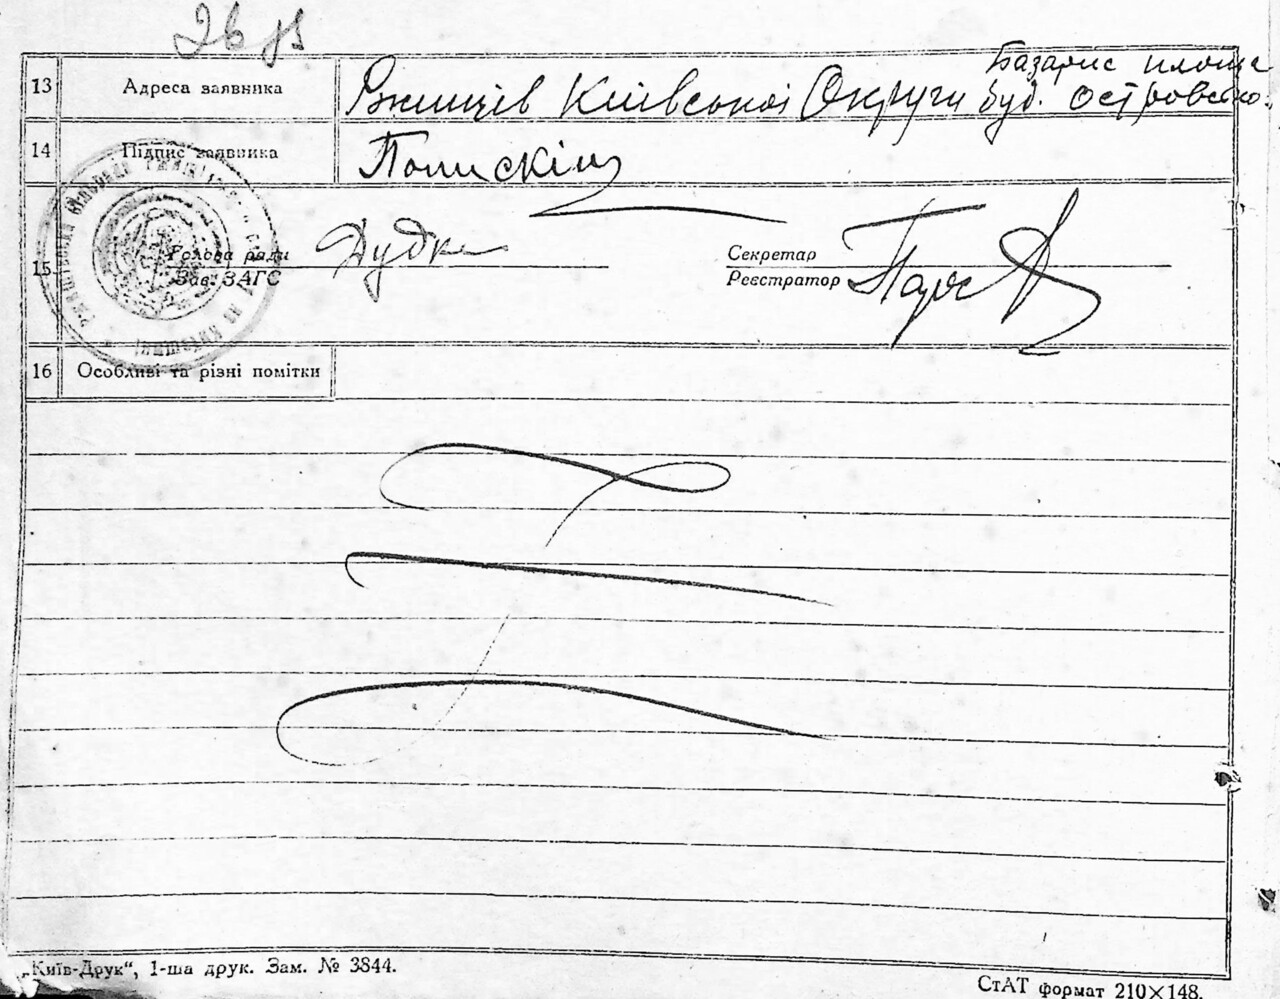 26
13 Адреса заявника Ржищів Київської Округи Базарна площа
буд. Островсько
14 Підпис заявника
15 Голова ради Дудка Секретар
Зав. ЗАГС Реєстратор
16 Особливі та різні помітки
„Київ-Друк“, 1-ша друк. Зам. № 3844.
СтАТ формат 210×148.